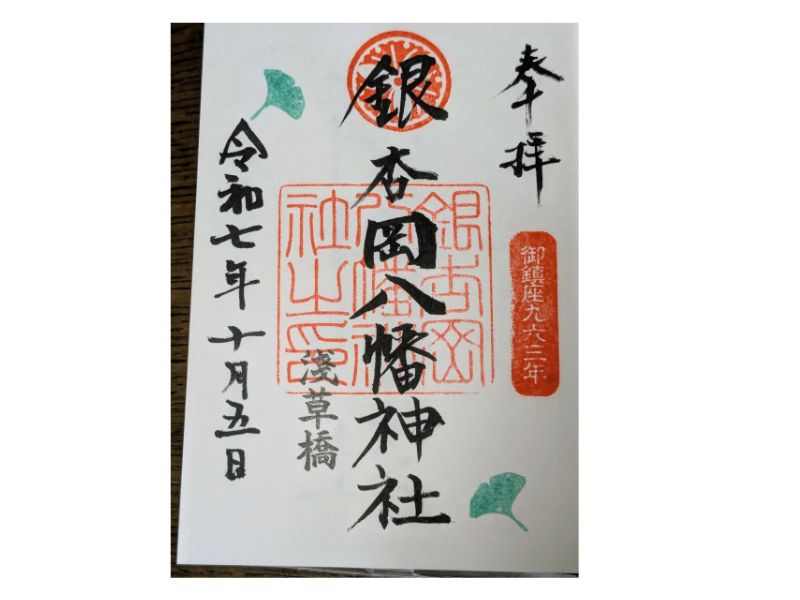 奉拝
御鎮座九六三年
銀杏岡八幡神社
銀杏岡八幡神社之印
淺草橋
令和七年十月五日